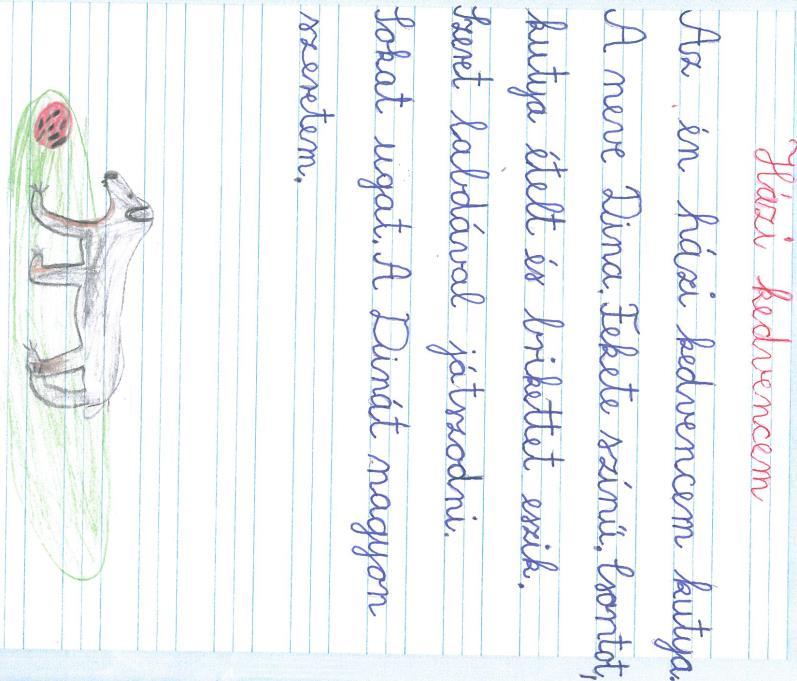 Házi kedvencem
Az én házi kedvencem kutya.
A neve Dina. Fekete színű. Csontot,
kutya ételt és brikettet eszik.
Szeret labdával játszodni.
Sokat ugat. A Dinát nagyon
szeretem.